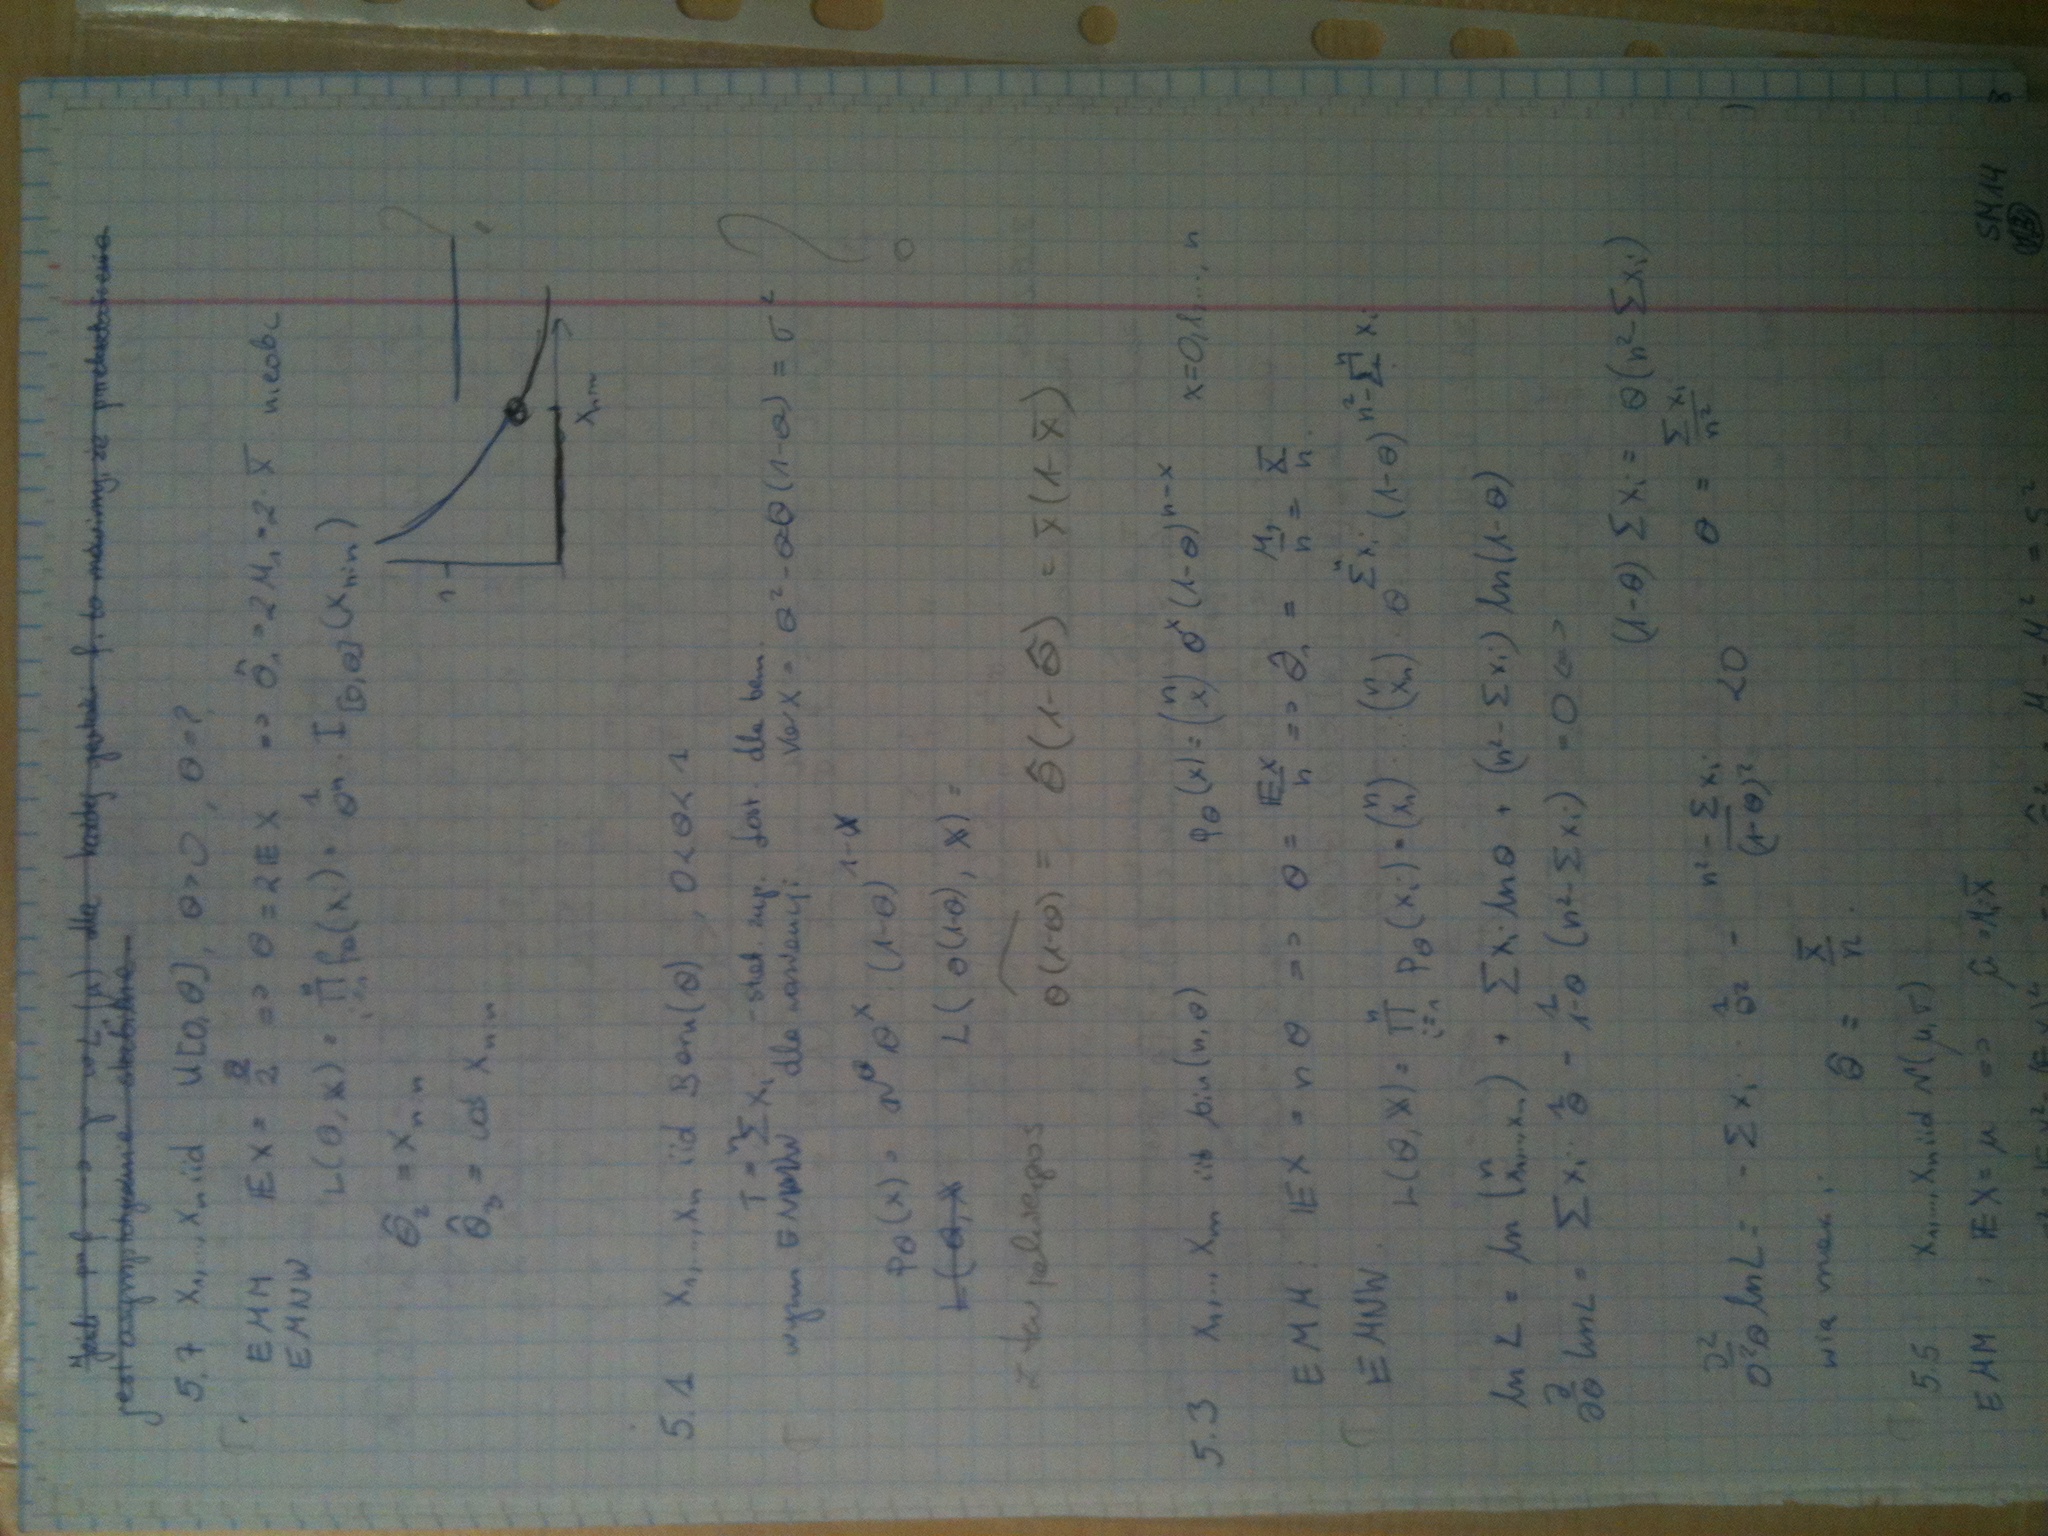 Jeśli P^n f → w L (μ) dla każdej gęstości f, to mówimy, że przekształcenie
jest asymptotycznie stabilne
5.7 X₁,...,Xₙ iid U[0,θ], θ>0, θ=?
EMM 𝔼X = θ/2 => θ = 2𝔼X => θ̂₁ = 2M₁ = 2·X̄ nieobc
EMNW
L(θ,x) = ∏ᵢ₌₁ⁿ f_θ(xᵢ) = 1/θⁿ · I_[0,θ](X_n:n)
θ̂₂ = X_n:n
θ̂₃ = coś X_n:n
1
?
X_n:n
5.1 X₁,...,Xₙ iid Bern(θ), 0<θ<1
T = Σⁿ Xᵢ - stat. zup. dost. dla bern.
wyzn EMNW dla wariancji: Var X = θ² - θ(1-θ) = σ²
?
p_θ(x) = θ^x · (1-θ)^(1-x)
L(θ,x L(θ(1-θ), x) =
z tw θ(1-θ)^ = θ̂(1-θ̂) = X̄(1-X̄)
5.3 X₁,...,Xₘ iid bin(n,θ) p_θ(x) = (n x) θ^x (1-θ)^(n-x) x=0,1,...,n
EMM: 𝔼X = nθ => θ = 𝔼X/n => θ̂₁ = M₁/n = X̄/n.
EMNW.
L(θ,x) = ∏ᵢ₌₁ⁿ p_θ(xᵢ) = (n x₁) ... (n xₙ) · θ^(Σⁿxᵢ) (1-θ)^(n²-Σⁿxᵢ)
ln L = ln (n x₁,...,xₙ) + Σxᵢ ln θ + (n²-Σxᵢ) ln(1-θ)
∂/∂θ ln L = Σxᵢ · 1/θ - 1/(1-θ) (n²-Σxᵢ) = 0 <=>
(1-θ) Σxᵢ = θ(n²-Σxᵢ)
θ = Σxᵢ/n²
∂²/∂²θ ln L = -Σxᵢ · 1/θ² - (n²-Σxᵢ)/(1-θ)² <0
więc max.:
θ̂ = X̄/n.
5.5 X₁,...,Xₙ iid N(μ,σ)
EMM: 𝔼X = μ => μ̂ = M₁ = X̄
σ² = 𝔼X² - (𝔼X)² => σ̂² = M₂ - M₁² = S²
SM14